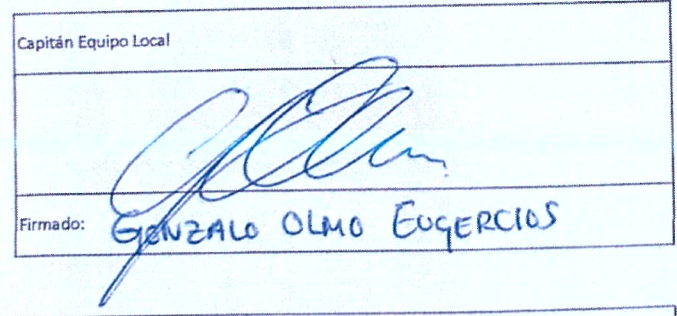 Capitán Equipo Local
Firmado: GONZALO OLMO EUGERCIOS